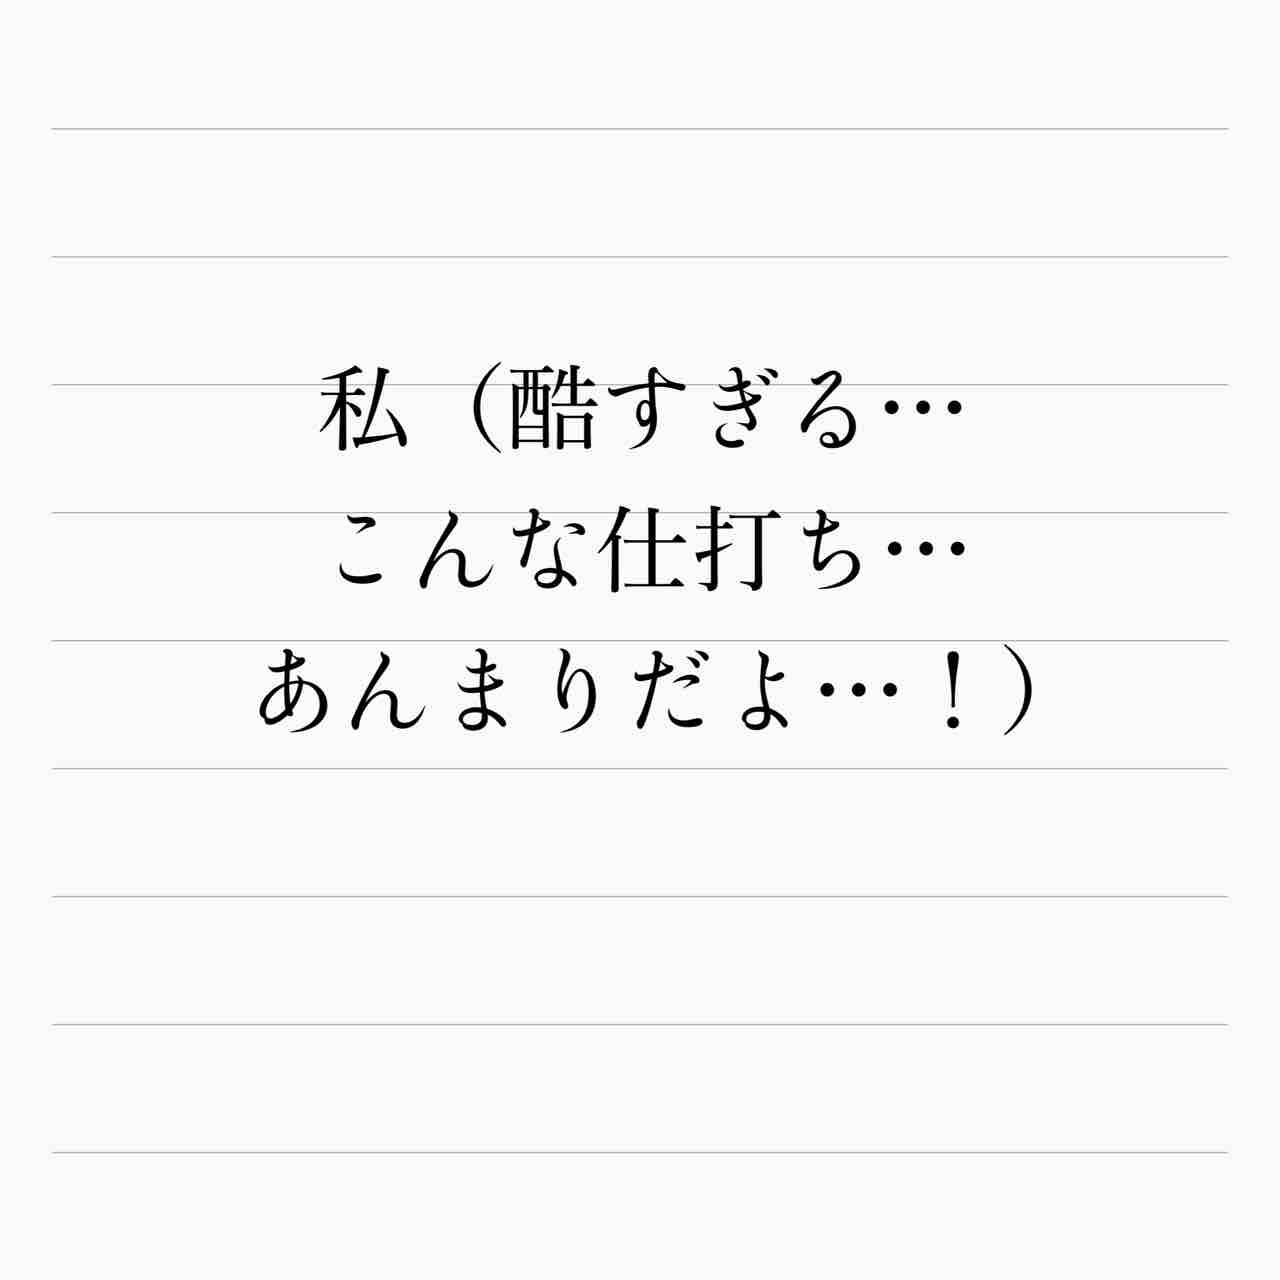 私（酷すぎる…
こんな仕打ち…
あんまりだよ…！）